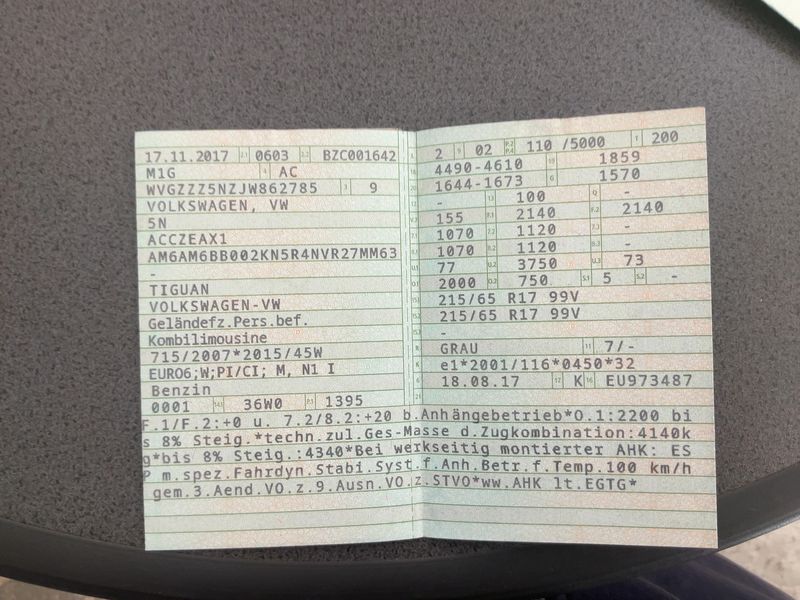 17.11.2017 0603 BZC001642
M1G AC
WVGZZZ5NZJW862785 9
VOLKSWAGEN, VW
5N
ACCZEAX1
AM6AM6BB002KN5R4NVR27MM63
-
TIGUAN
VOLKSWAGEN-VW
Geländefz.Pers.bef.
Kombilimousine
715/2007*2015/45W
EURO6;W;PI/CI; M, N1 I
Benzin
0001 36W0 1395
2 02 110 /5000 200
4490-4610 1859
1644-1673 1570
- 100 -
155 2140 2140
1070 1120 -
1070 1120 -
77 3750 73
2000 750 5 -
215/65 R17 99V
215/65 R17 99V
-
GRAU 7/-
e1*2001/116*0450*32
18.08.17 K EU973487
F.1/F.2:+0 u. 7.2/8.2:+20 b.Anhängebetrieb*O.1:2200 bi
s 8% Steig.*techn.zul.Ges-Masse d.Zugkombination:4140k
g*bis 8% Steig.:4340*Bei werkseitig montierter AHK: ES
P m.spez.Fahrdyn.Stabi.Syst.f.Anh.Betr.f.Temp.100 km/h
gem.3.Aend.VO.z.9.Ausn.VO.z.STVO*ww.AHK lt.EGTG*